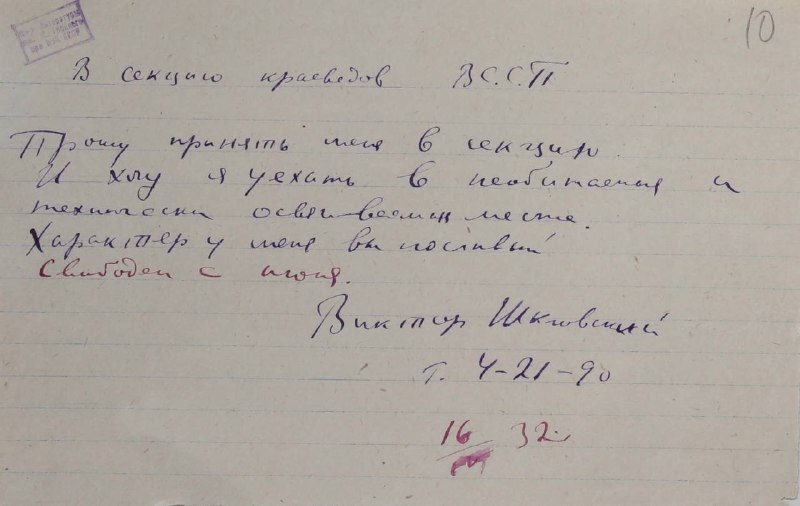 10
В секцию краеведов В.С.С.П
Прошу принять меня в секцию.
И хочу я уехать в необитаемыя и
технически осваиваемыя места.
Характер у меня выносливый
Свободен с июня.
Виктор Шкловский
т. 4-21-90
16 32